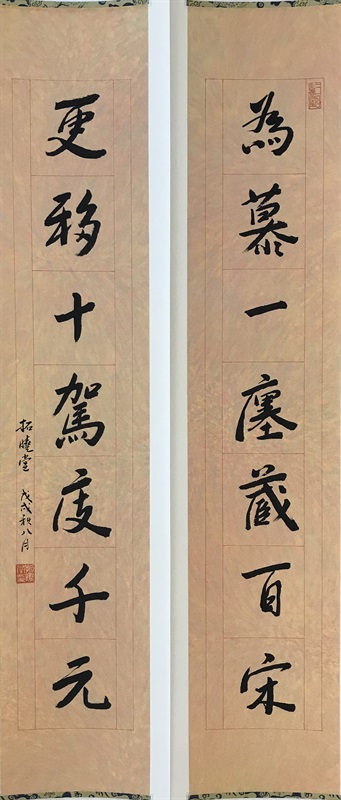 為慕一廛藏百宋
更移十駕庋千元
拓曉堂 戊戌秋八月